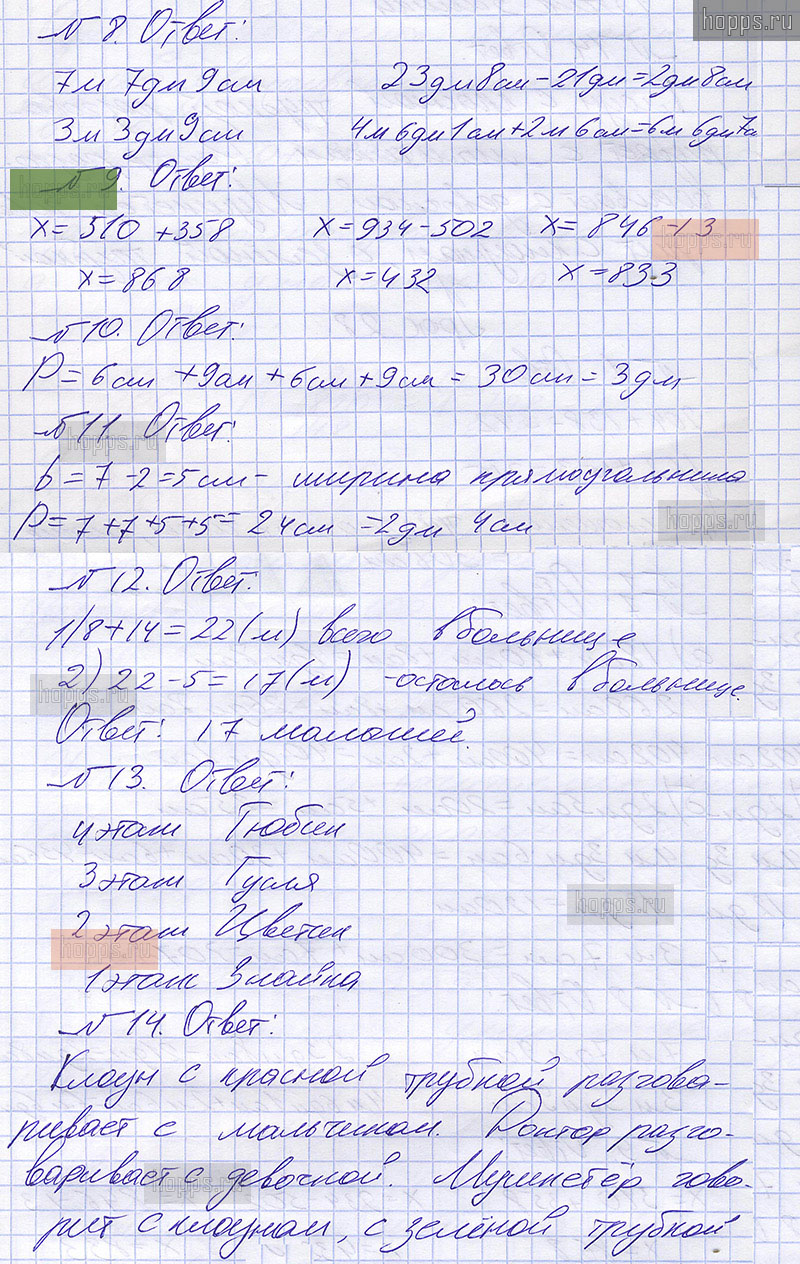 hopps.ru
№ 8. Ответ:
7м 7дм 9см 23дм 8см - 21дм = 2дм 8см
3м 3дм 9см 4м 6дм 1см + 2м 6см = 6м 6дм 7см
№ 9. Ответ:
hopps.ru
x = 510 + 358 x = 934 - 502 x = 846 - 13
hopps.ru
x = 868 x = 432 x = 833
№ 10. Ответ:
P = 6см + 9см + 6см + 9см = 30см = 3дм
№ 11. Ответ:
hopps.ru
b = 7 - 2 = 5см - ширина прямоугольника
P = 7 + 7 + 5 + 5 = 24см = 2дм 4см
hopps.ru
№ 12. Ответ:
1) 8 + 14 = 22 (м) всего в больнице
2) 22 - 5 = 17 (м) - осталось в больнице.
hopps.ru
Ответ: 17 малышей.
№ 13. Ответ:
4 этаж Тюбик
3 этаж Гусля
hopps.ru
2 этаж Цветик
hopps.ru
1 этаж Знайка
№ 14. Ответ:
Клоун с красной трубкой разгова-
ривает с мальчиком. Доктор разго-
варивает с девочкой. Мушкетёр гово-
hopps.ru
рит с клоуном, с зелёной трубкой